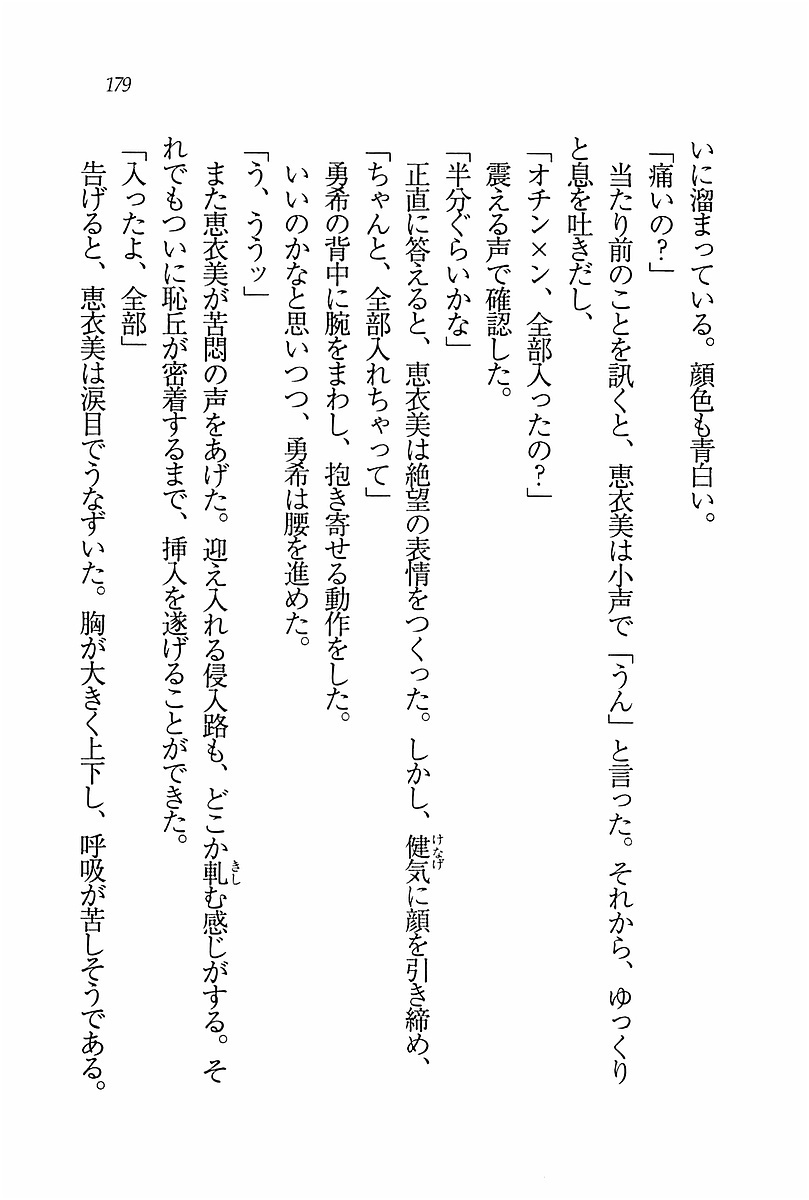 179
いに溜まっている。顔色も青白い。
「痛いの？」
当たり前のことを訊くと、恵衣美は小声で「うん」と言った。それから、ゆっくり
と息を吐きだし、
「オチン×ン、全部入ったの？」
震える声で確認した。
「半分ぐらいかな」
正直に答えると、恵衣美は絶望の表情をつくった。しかし、健気に顔を引き締め、
けなげ
「ちゃんと、全部入れちゃって」
勇希の背中に腕をまわし、抱き寄せる動作をした。
いいのかなと思いつつ、勇希は腰を進めた。
「う、ううッ」
また恵衣美が苦悶の声をあげた。迎え入れる侵入路も、どこか軋む感じがする。そ
きし
れでもついに恥丘が密着するまで、挿入を遂げることができた。
「入ったよ、全部」
告げると、恵衣美は涙目でうなずいた。胸が大きく上下し、呼吸が苦しそうである。